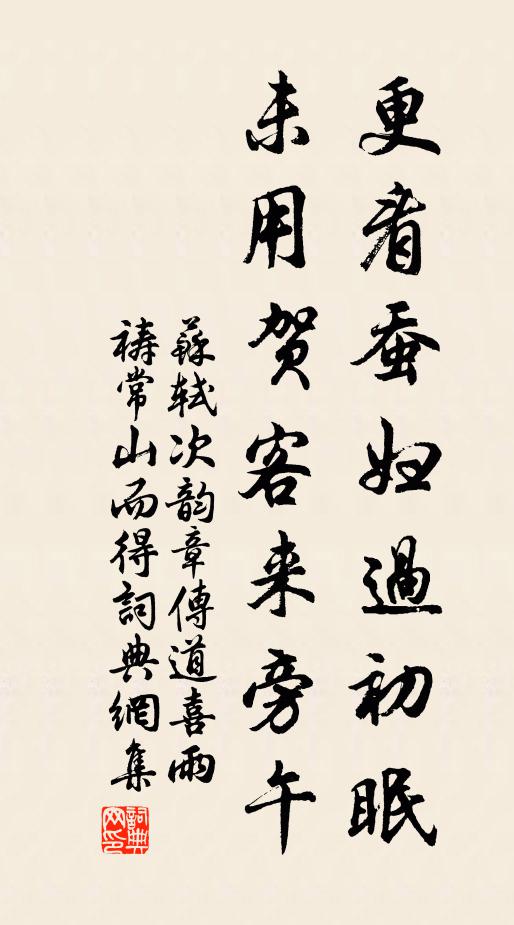 更看蚕妇過初眠
未用贺客来旁午
蘇軾次韵章傳道喜雨
祷常山而得詞典網集
詞典网印